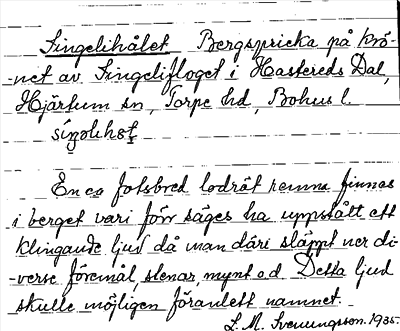 Singelihålet Bergspricka på krö-
-net av Singelifloget i Hastereds Dal,
Hjärtum sn, Torpe hd, Bohus l.
En ca fotsbred lodrät remna finnas
i berget vari förr säges ha uppstått ett
klingande ljud då man däri släppt ner di-
-verse föremål, stenar, mynt o.d. Detta ljud
skulle möjligen föranlett namnet.
L. M. Svenungson. 1935.